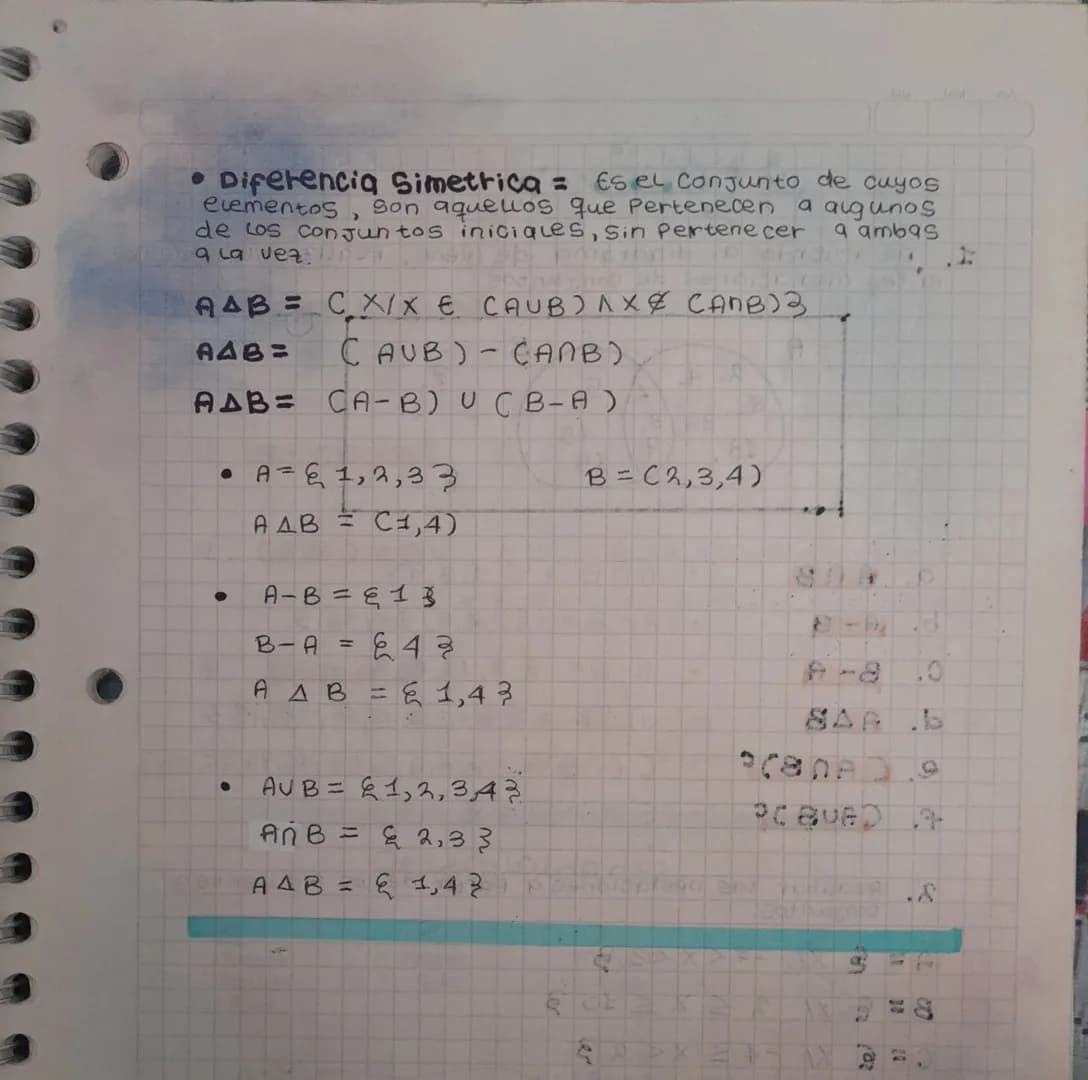 • Diferencia Simetrica = Es el conjunto de cuyos
elementos, son aquellos que pertenecen a algunos
de los conjuntos iniciales, sin pertenecer a ambas
a la vez.
A∆B = { x/x ∈ (A∪B) ∧ x ∉ (A∩B)}
A∆B = (A∪B) - (A∩B)
A∆B = (A-B) ∪ (B-A)
• A = {1,2,3} B = (2,3,4)
A∆B = (1,4)
• A-B = {1}
B-A = {4}
A ∆ B = {1,4}
• A∪B = {1,2,3,4}
A∩B = {2,3}
A∆B = {1,4}